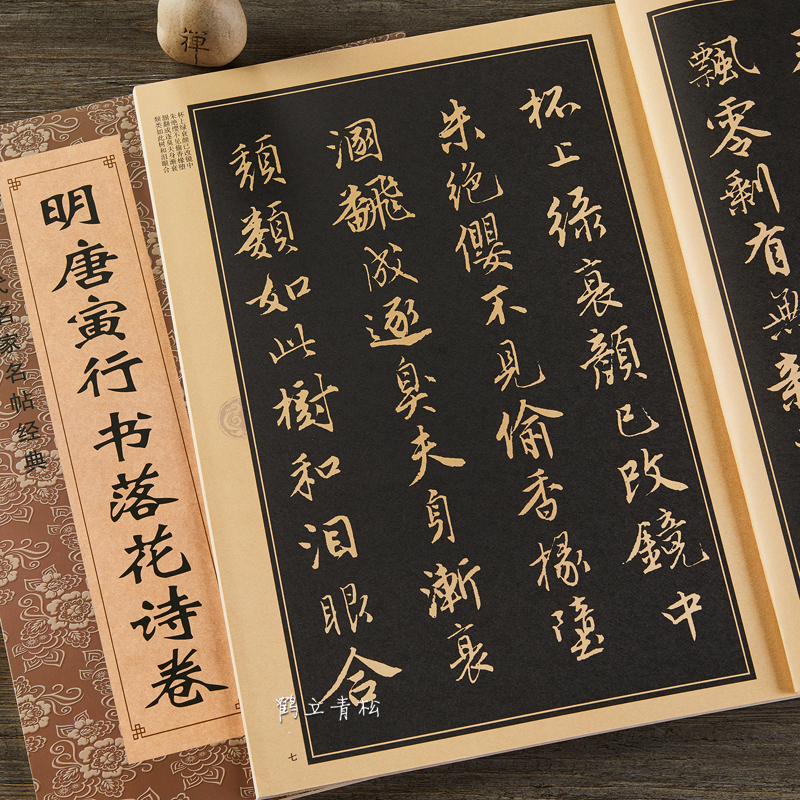 禪
飄零剩有
杯上緑衰顔已改鏡中
朱絶纓不見偷香掾墮
溷飜成逐臭夫身漸衰
頽類如此樹和泪眼合
杯上绿衰颜已改镜中
朱绝缨不见偷香掾堕
溷翻成逐臭夫身渐衰
颓类如此树和泪眼合
七
明唐寅行书落花诗卷
代名家名帖经典
鹤立青松